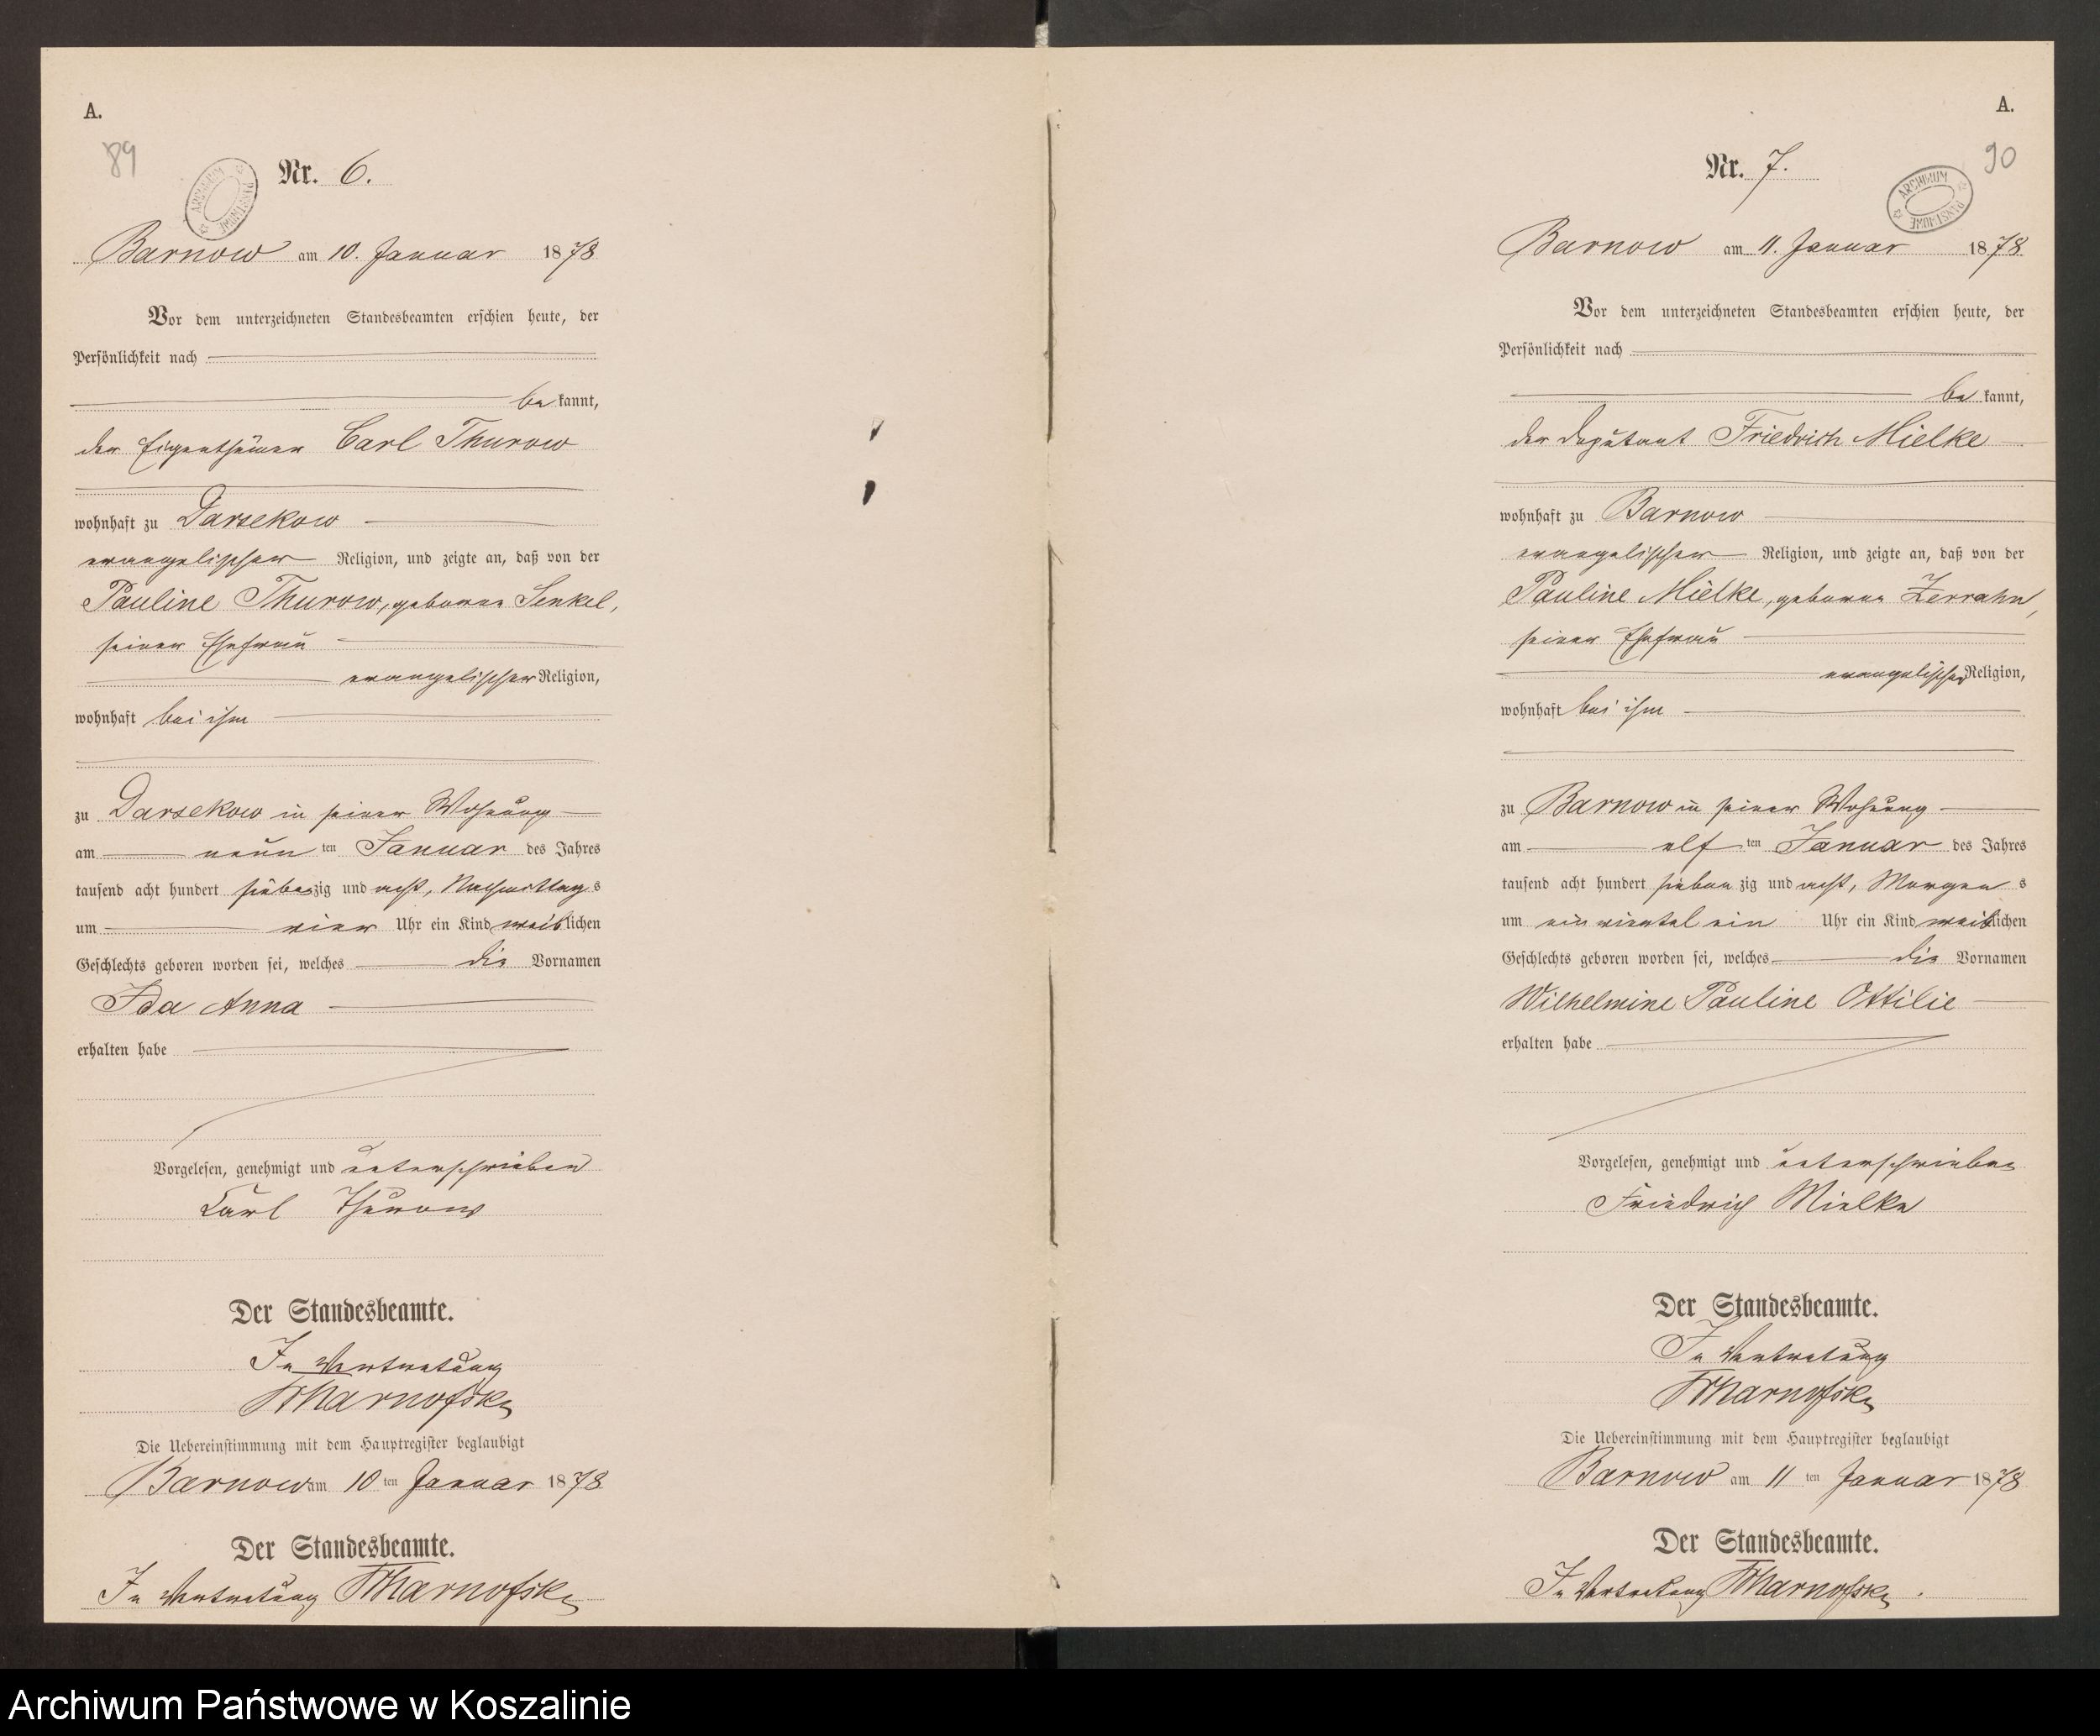 A.
89
ARCHIWUM PAŃSTWOWE
Nr. 6.
Barnow am 10. Januar 1878
Vor dem unterzeichneten Standesbeamten erschien heute, der
Persönlichkeit nach
be kannt,
der Eigenthümer Carl Thurow
wohnhaft zu Darsekow
evangelischer Religion, und zeigte an, daß von der
Pauline Thurow, geborne Senkel,
seiner Ehefrau
evangelischer Religion,
wohnhaft bei ihm
zu Darsekow in seiner Wohnung
am neun ten Januar des Jahres
tausend acht hundert siebenzig und acht, Nachmittags
um vier Uhr ein Kind weiblichen
Geschlechts geboren worden sei, welches die Vornamen
Ida Anna
erhalten habe
Vorgelesen, genehmigt und unterschrieben
Carl Thurow
Der Standesbeamte.
In Vertretung
Die Uebereinstimmung mit dem Hauptregister beglaubigt
Barnow am 10 ten Januar 1878
Der Standesbeamte.
In Vertretung
A.
90
ARCHIWUM PAŃSTWOWE
Nr. 7.
Barnow am 11. Januar 1878
Vor dem unterzeichneten Standesbeamten erschien heute, der
Persönlichkeit nach
be kannt,
der Deputant Friedrich Mielke
wohnhaft zu Barnow
evangelischer Religion, und zeigte an, daß von der
Pauline Mielke, geborne Zerrahn,
seiner Ehefrau
evangelischer Religion,
wohnhaft bei ihm
zu Barnow in seiner Wohnung
am elf ten Januar des Jahres
tausend acht hundert siebenzig und acht, Morgens
um ein viertel ein Uhr ein Kind weiblichen
Geschlechts geboren worden sei, welches die Vornamen
Wilhelmine Pauline Ottilie
erhalten habe
Vorgelesen, genehmigt und unterschrieben
Friedrich Mielke
Der Standesbeamte.
In Vertretung
Die Uebereinstimmung mit dem Hauptregister beglaubigt
Barnow am 11 ten Januar 1878
Der Standesbeamte.
In Vertretung
Archiwum Państwowe w Koszalinie